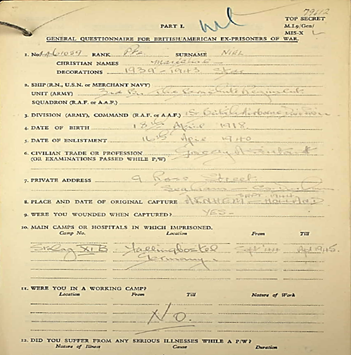 79112
PART I.
TOP SECRET
M.I.9/Gen/
MIS-X
GENERAL QUESTIONNAIRE FOR BRITISH/AMERICAN EX-PRISONERS OF WAR.
1. No. RANK Pte. SURNAME
CHRISTIAN NAMES
DECORATIONS 1939-1945 Star
2. SHIP (R.N., U.S.N. or MERCHANT NAVY)
UNIT (ARMY) The Parachute Regiment
SQUADRON (R.A.F. or A.A.F.)
3. DIVISION (ARMY), COMMAND (R.A.F. or A.A.F.)
4. DATE OF BIRTH 18th April 1918
5. DATE OF ENLISTMENT April 1940
6. CIVILIAN TRADE OR PROFESSION
(OR EXAMINATIONS PASSED WHILE P/W)
7. PRIVATE ADDRESS 9 Street
8. PLACE AND DATE OF ORIGINAL CAPTURE ARNHEM - HOLLAND
9. WERE YOU WOUNDED WHEN CAPTURED? YES -
10. MAIN CAMPS OR HOSPITALS IN WHICH IMPRISONED.
Camp No. Location From Till
Stalag XIB Fallingbostel Sept '44
Germany
11. WERE YOU IN A WORKING CAMP?
Location From Till Nature of Work
No.
12. DID YOU SUFFER FROM ANY SERIOUS ILLNESSES WHILE A P/W?
Nature of Illness Cause Duration